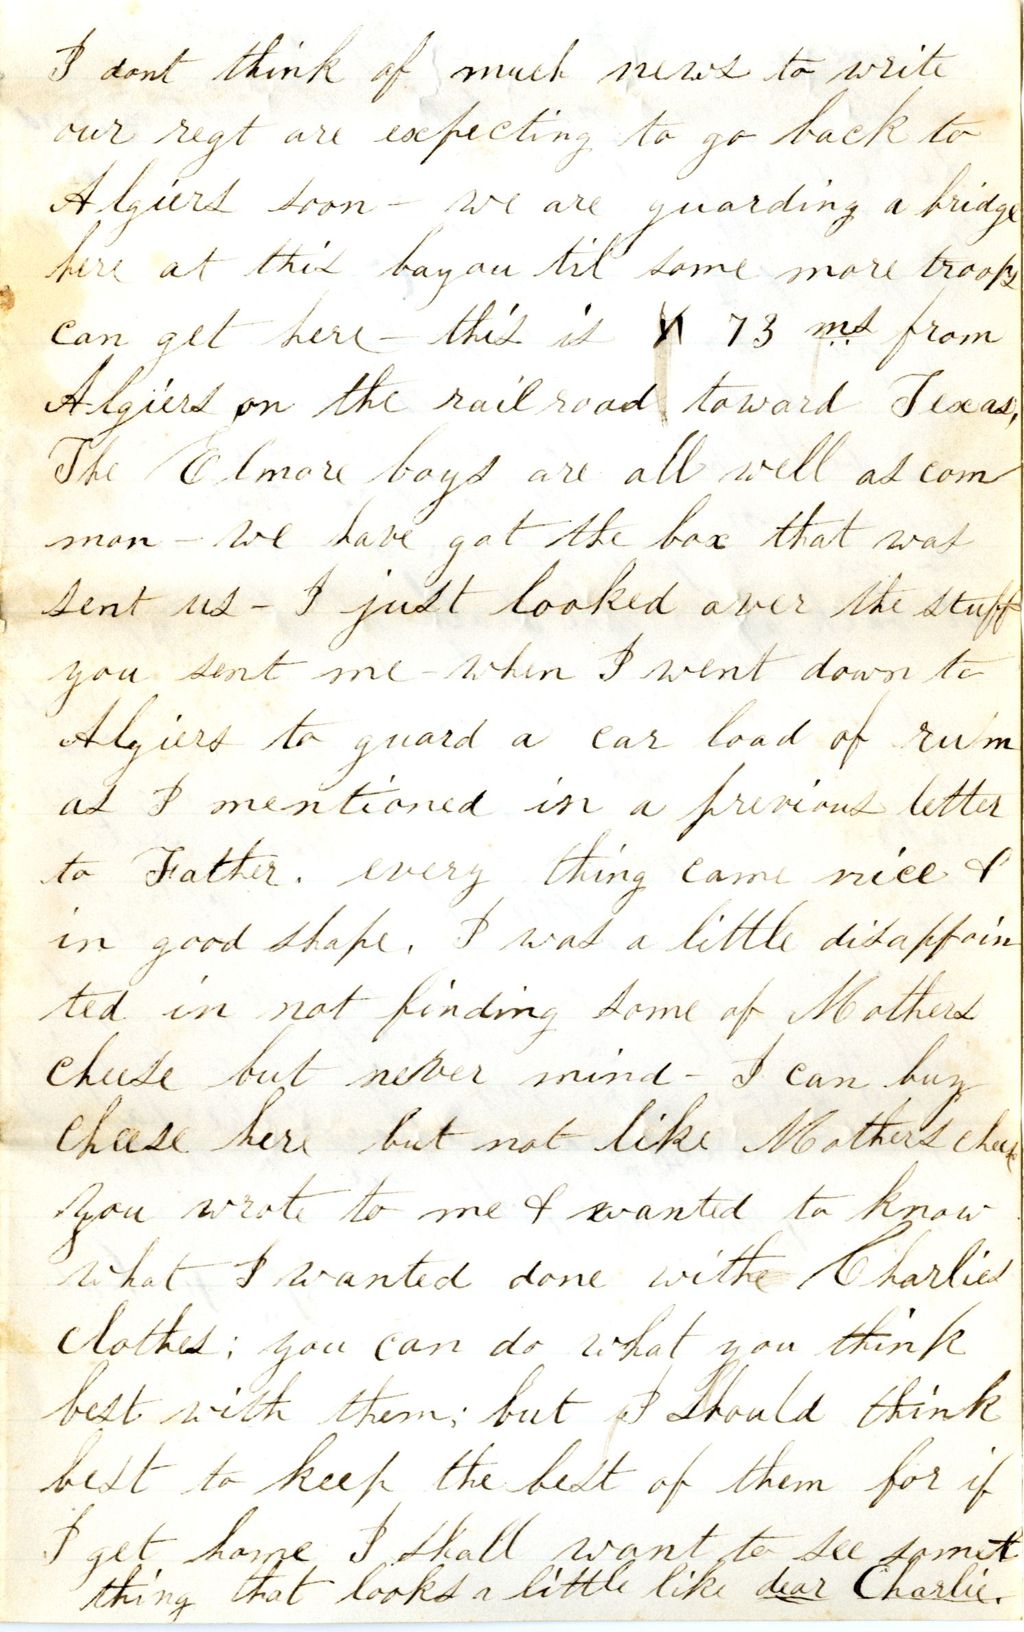 I dont think of much news to write
our regt are expecting to go back to
Algiers soon - we are guarding a bridge
here at this bayou til some more troops
can get here - this is 73 ms from
Algiers on the railroad toward Texas.
The Elmore boys are all well as com
mon - we have got the box that was
sent us - I just looked over the stuff
you sent me - when I went down to
Algiers to guard a car load of rum
as I mentioned in a previous letter
to Father. every thing came nice &
in good shape. I was a little disappoin
ted in not finding some of Mothers
cheese but never mind - I can buy
cheese here but not like Mothers cheese
you wrote to me & wanted to know
what I wanted done withe Charlies
clothes; you can do what you think
best with them; but I should think
best to keep the best of them for if
I get home I shall want to see somet
thing that looks a little like dear Charlie.